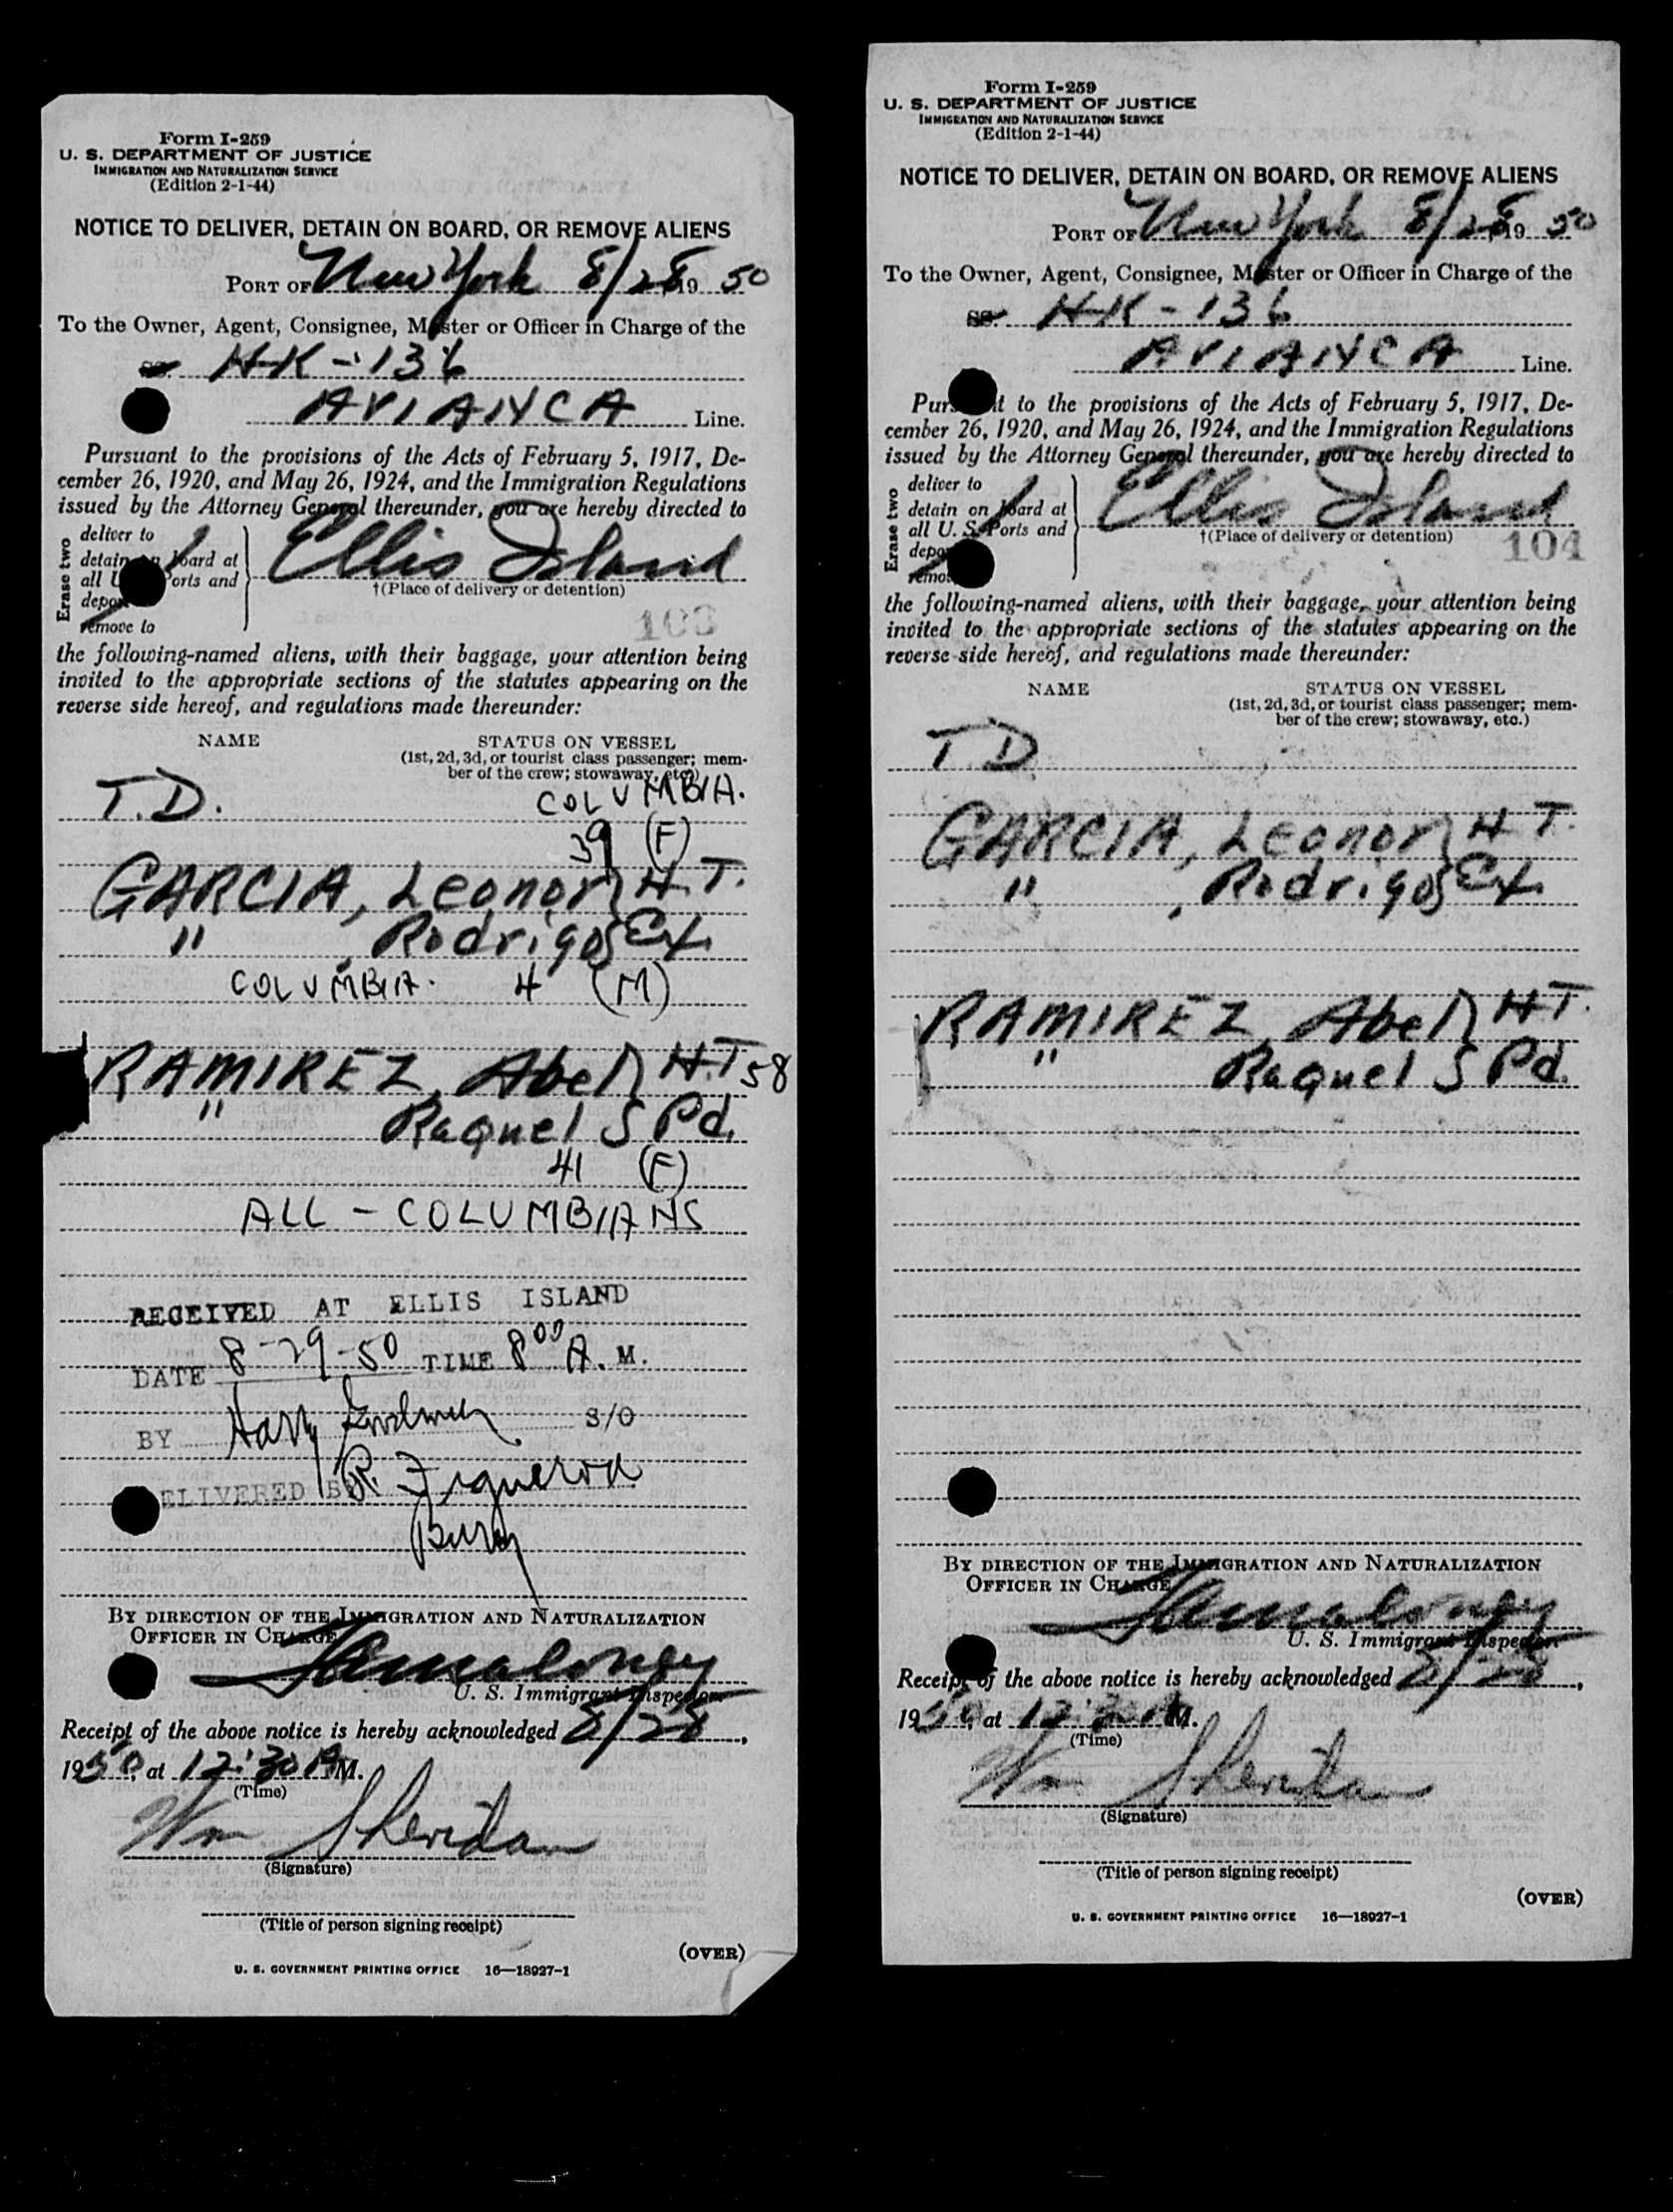 Form I-259
U. S. DEPARTMENT OF JUSTICE
IMMIGRATION AND NATURALIZATION SERVICE
(Edition 2-1-44)
NOTICE TO DELIVER, DETAIN ON BOARD, OR REMOVE ALIENS
PORT OF New York 8/28, 19 50
To the Owner, Agent, Consignee, Master or Officer in Charge of the
SS. HK-136
AVIANCA Line.
Pursuant to the provisions of the Acts of February 5, 1917, De-
cember 26, 1920, and May 26, 1924, and the Immigration Regulations
issued by the Attorney General thereunder, you are hereby directed to
Erase two
deliver to
detain on board at
all U. Ports and
depo
remove to
Ellis Island
†(Place of delivery or detention)
103
the following-named aliens, with their baggage, your attention being
invited to the appropriate sections of the statutes appearing on the
reverse side hereof, and regulations made thereunder:
NAME STATUS ON VESSEL
(1st, 2d, 3d, or tourist class passenger; mem-
ber of the crew; stowaway, etc.)
T.D. COLUMBIA.
39 (F)
GARCIA, Leonor } H.T.
" , Rodrigo } Ex.
COLUMBIA. 4 (M)
RAMIREZ, Abel } H.T. 58
" Raquel } Pd.
41 (F)
ALL - COLUMBIANS
RECEIVED AT ELLIS ISLAND
DATE 8-29-50 TIME 8 00 A. M.
BY Harry S/O
ELIVERED BY R. Figueroa
BY DIRECTION OF THE IMMIGRATION AND NATURALIZATION
OFFICER IN CHARGE
U. S. Immigrant Inspector.
Receipt of the above notice is hereby acknowledged 8/28,
1950, at 12:30 A M.
(Time)
Wm Sheridan
(Signature)
(Title of person signing receipt)
(OVER)
U. S. GOVERNMENT PRINTING OFFICE 16—18927-1
Form I-259
U. S. DEPARTMENT OF JUSTICE
IMMIGRATION AND NATURALIZATION SERVICE
(Edition 2-1-44)
NOTICE TO DELIVER, DETAIN ON BOARD, OR REMOVE ALIENS
PORT OF New York 8/28, 19 50
To the Owner, Agent, Consignee, Master or Officer in Charge of the
SS. HK-136
AVIANCA Line.
Pursuant to the provisions of the Acts of February 5, 1917, De-
cember 26, 1920, and May 26, 1924, and the Immigration Regulations
issued by the Attorney General thereunder, you are hereby directed to
Erase two
deliver to
detain on board at
all U. S. Ports and
depo
remo
Ellis Island
†(Place of delivery or detention)
104
the following-named aliens, with their baggage, your attention being
invited to the appropriate sections of the statutes appearing on the
reverse side hereof, and regulations made thereunder:
NAME STATUS ON VESSEL
(1st, 2d, 3d, or tourist class passenger; mem-
ber of the crew; stowaway, etc.)
T.D.
GARCIA, Leonor } H.T.
" , Rodrigo } Ex.
RAMIREZ, Abel } H.T.
" Raquel } Pd.
BY DIRECTION OF THE IMMIGRATION AND NATURALIZATION
OFFICER IN CHARGE
U. S. Immigrant Inspector.
Receipt of the above notice is hereby acknowledged 8/28,
1950, at 12:30 A M.
(Time)
Wm Sheridan
(Signature)
(Title of person signing receipt)
(OVER)
U. S. GOVERNMENT PRINTING OFFICE 16—18927-1